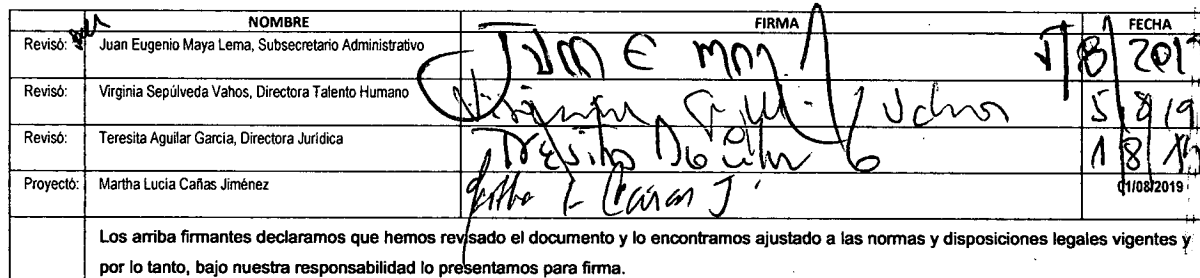 NOMBRE FIRMA FECHA
Revisó: Juan Eugenio Maya Lema, Subsecretario Administrativo 8 201
Revisó: Virginia Sepúlveda Vahos, Directora Talento Humano 5 8 19
Revisó: Teresita Aguilar García, Directora Jurídica Teresita Aguilar G 1 8 19
Proyectó: Martha Lucía Cañas Jiménez Martha L Cañas J 01/08/2019
Los arriba firmantes declaramos que hemos revisado el documento y lo encontramos ajustado a las normas y disposiciones legales vigentes y
por lo tanto, bajo nuestra responsabilidad lo presentamos para firma.